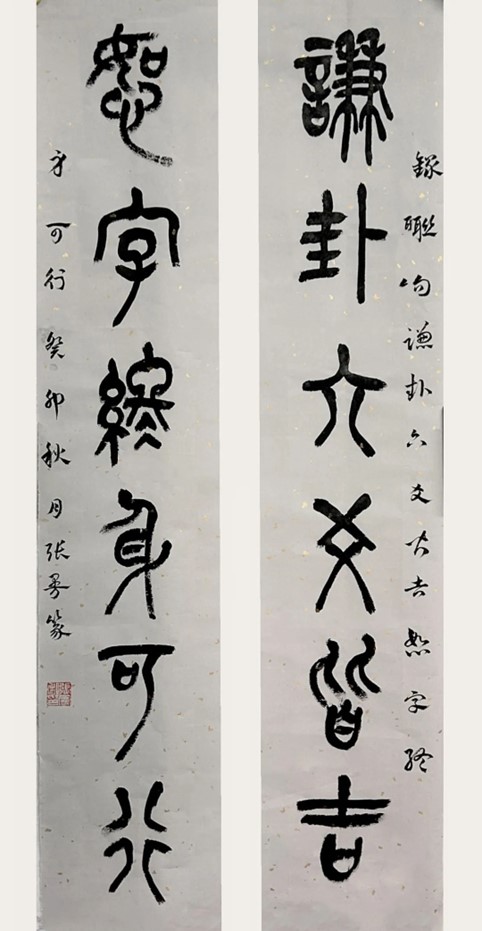 錄聯句謙卦六爻大吉恕字終
謙卦六爻皆吉
恕字終身可行
身可行癸卯秋月張篆